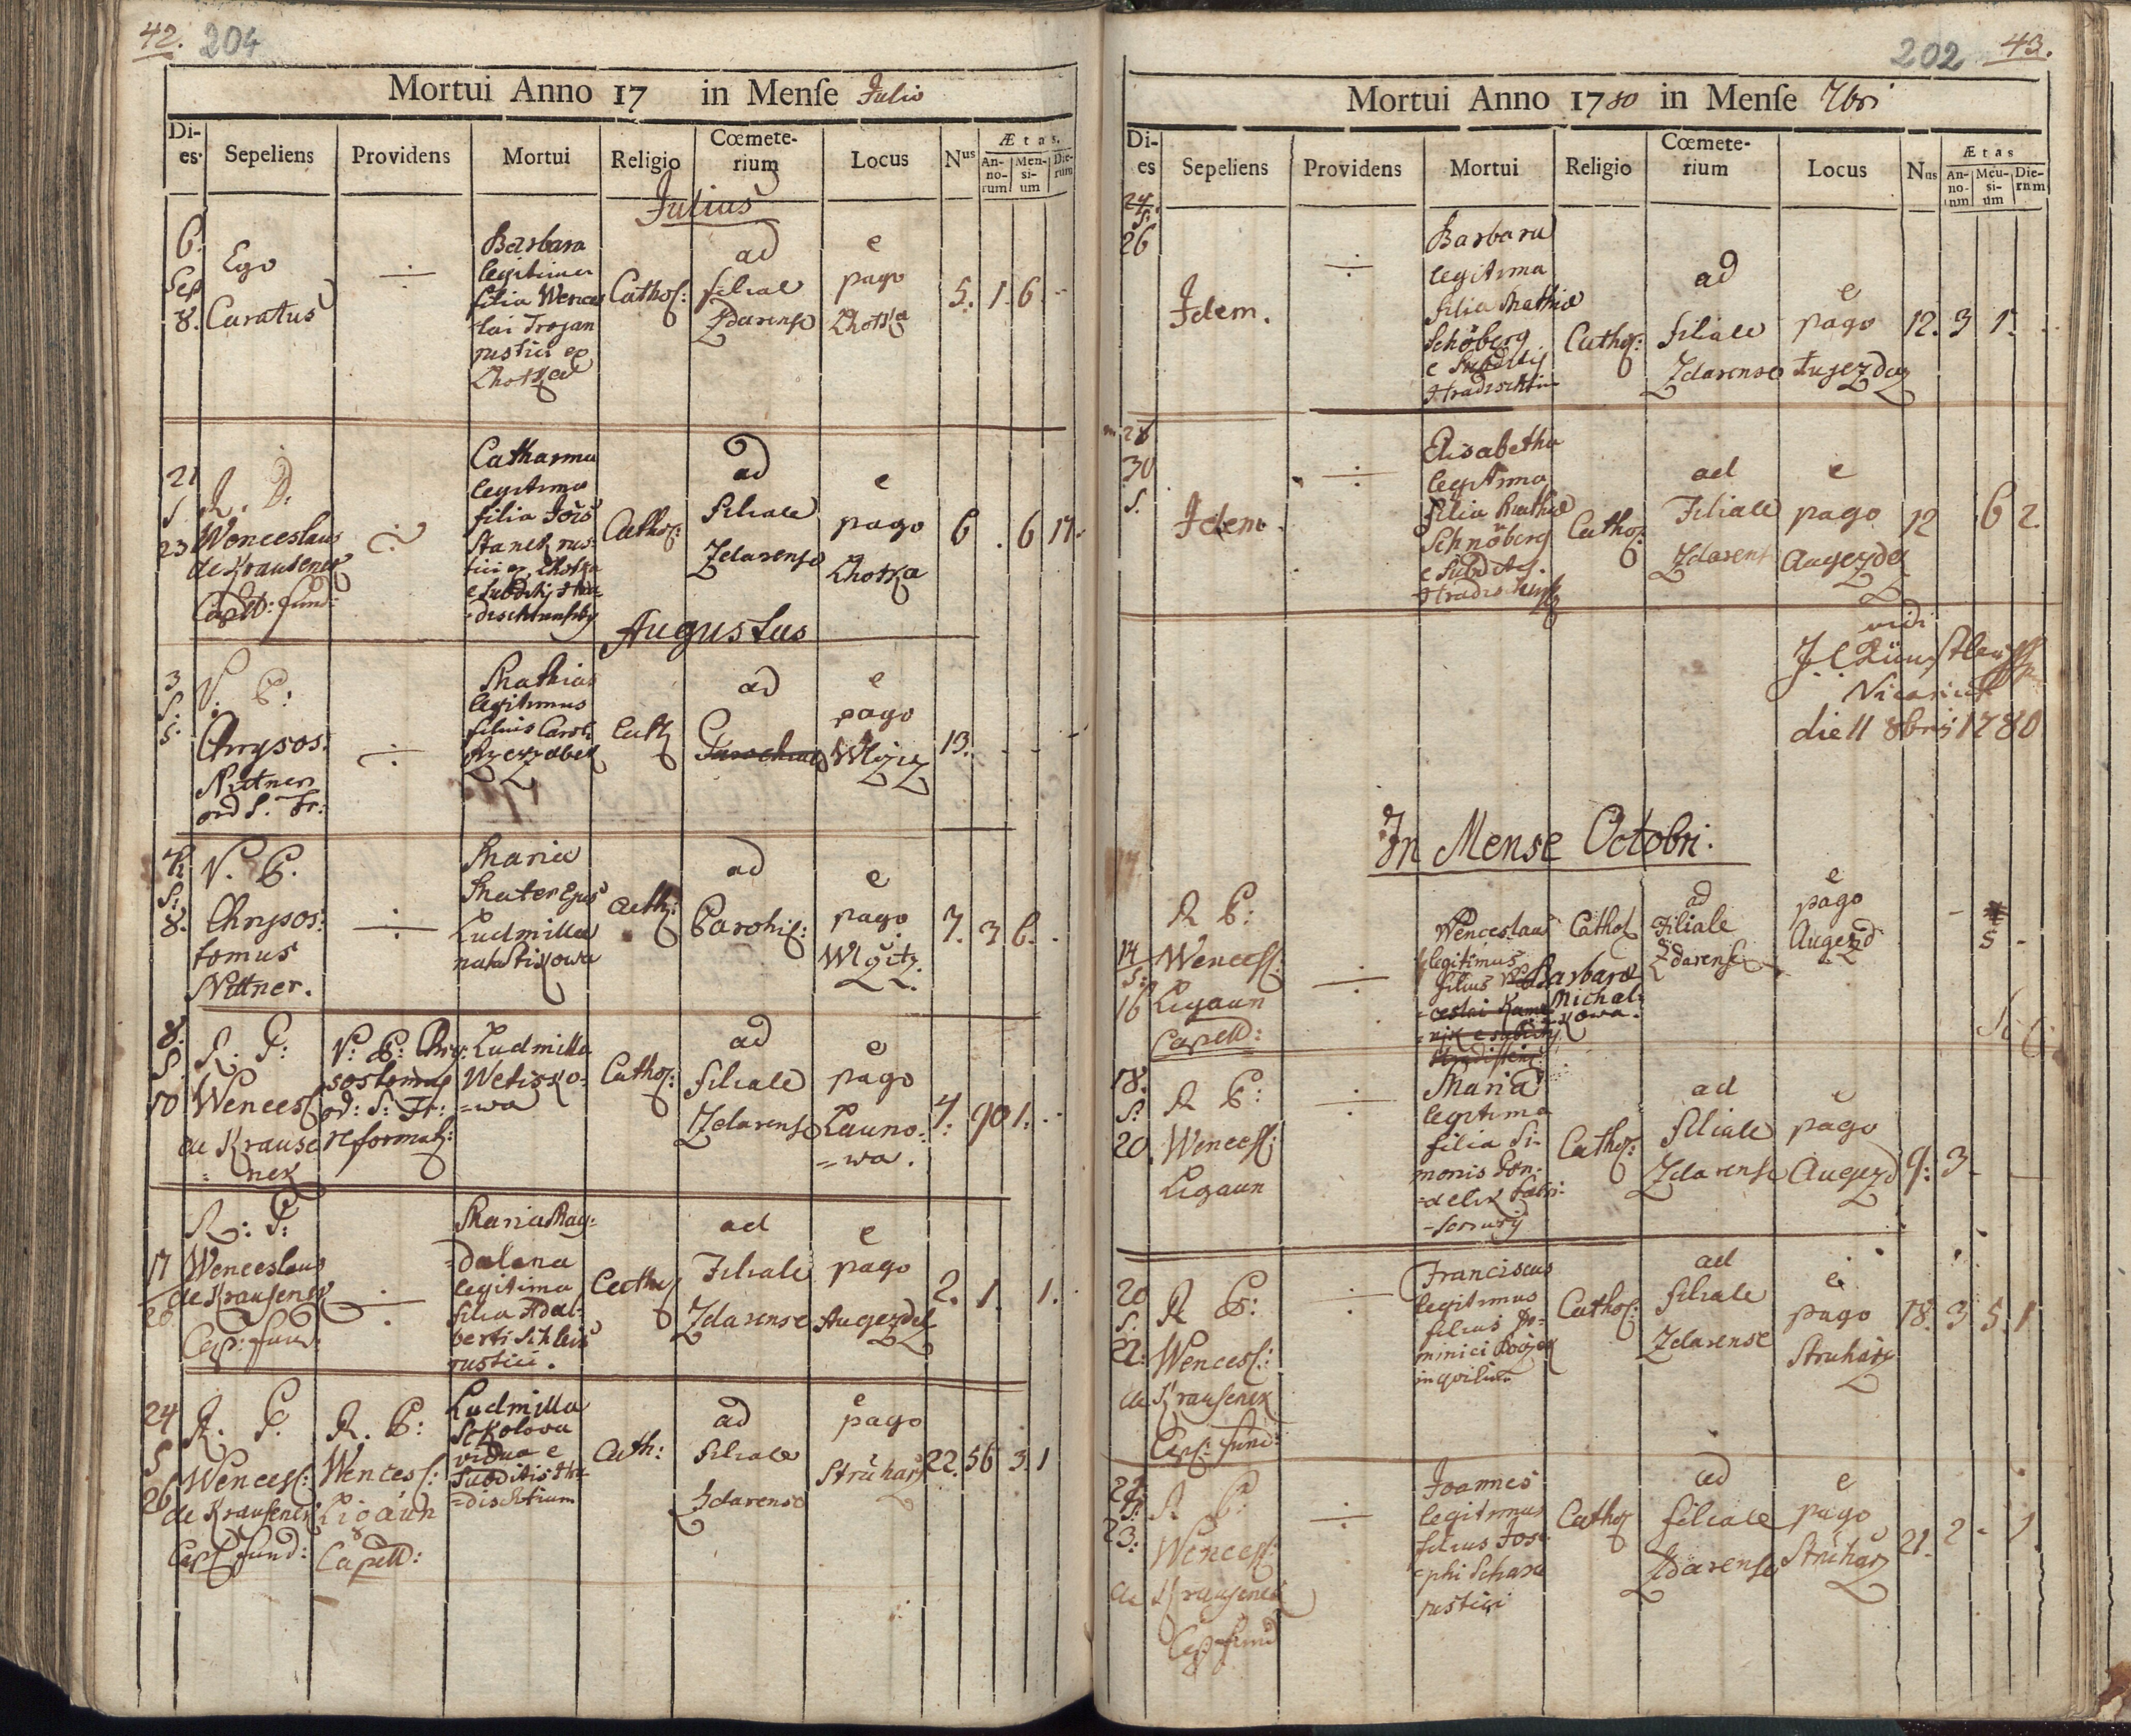 42. 204
Mortui Anno 17 in Mense Julio
Dies Sepeliens Providens Mortui Religio Cœmeterium Locus Nus Ætas.
Annorum Mensium Dierum
Julius
6. Sep 8.
Ego
Curatus
Barbara
legitima
filia Wences
lai Trojan
rustici ex
Lhotka
Cathol:
ad
filiale
Zdarense
e
pago
Lhotka
5. 1. 6.
21
S
23
R. D.
Wenceslaus
de Krausenek
Capell: fund:
Catharina
legitima
filia Jois
Stanek rus-
tici ex Lhotka
e subditis Hra-
Cathol:
ad
filiale
Zdarense
e
pago
Lhotka
6. 6 17.
Augustus
3
S.
5.
V. P:
Chrysos:
Nittner
ord S. Fr:
Mathias
legitimus
filius Caroli
Cath
ad
Parochiale
e
pago
13.
S:
8.
V. P.
Chrysos:
tomus
Nittner.
Maria
Mater Ejus
Ludmilla
Cath:
ad
Parohi:
e
pago
7. 3 6.
8.
S.
10
R. P:
Wencesl
de Krause
= nek
V: P: Chry:
sostomus
od: S: Fr:
reformat:
Ludmilla
Wetisko-
=wa
Cathol:
ad
filiale
Zdarense
e
pago
Launo-
=wa.
7. 90 1.
17
20
R: P:
Wenceslaus
de Krausenek
Cap: fund:
Maria Mag:
=dalena
legitima
filia Adal-
berti Schleis
rustici.
Cathol
ad
Filiale
Zdarense
e
pago
Augezdek
2. 1. 1.
24
S
26
R. P.
Wencesl:
de Krausenek
Capl fund:
R. P:
Wencesl:
Ligaun
Capell:
Ludmilla
Sokolova
vidua e
subditis Hra-
=dischtium
Cath:
ad
filiale
Zdarense
e
pago
Struharz
22. 56 3. 1
202 43.
Mortui Anno 1780 in Mense 7bri
Dies Sepeliens Providens Mortui Religio Cœmeterium Locus Nus Ætas
Annorum Mensium Dierum
24
S:
26
Idem.
Barbara
legitima
filia Mathiæ
Schöberg
e subditis
Cathol:
ad
filiale
Zdarense
e
pago
12. 3 1.
28
30
S.
Idem.
Elisabetha
legitima
filia Mathiæ
Schnöberg
e subditis
Cathol:
ad
Filiale
Zdarens
e
pago
Augezdek
12 6 2.
vidi
Vicarius
die 11 8bris 1780
In Mense Octobri.
14
S:
16
R P:
Wencesl:
Ligaun
Capell:
Wenceslaus
legitimus
filius Barbaræ
Michal-
kowa.
Cathol
ad
Filiale
Zdarense
e
pago
Augezd
- 5 -
18.
S:
20.
R P:
Wencesl:
Ligaun
Maria
legitima
filia Si-
monis
Cathol:
ad
filiale
Zdarense
e
pago
Augezd
9: 3
20
S.
22.
R P:
Wencesl:
de Krausenek
Capl: fund:
Franciscus
legitimus
filius Do-
minici
inquilini
Cathol:
ad
filiale
Zdarense
e
pago
Struharz
18. 3 5. 1
23:
R. P:
Wencesl:
de Krausenek
Cap: fund
Joannes
legitimus
filius Jose-
=phi
rustici
Cathol
ad
filiale
Zdarense
e
pago
Struharz
21. 2 - 1